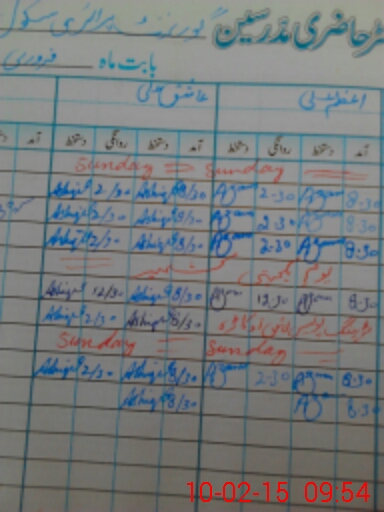 رجسٹر حاضری مدرسین گورنمنٹ پرائمری سکول
بابت ماہ فروری
اعظم علی عاشق علی
آمد دستخط روانگی دستخط آمد دستخط روانگی دستخط آمد
Sunday Sunday
8-30 Azam 2-30 Azam 8/30 Ashiq 2/30 Ashiq
8-30 Azam 2-30 Azam 8/30 Ashiq 2/30 Ashiq
8-30 Azam 2-30 Azam 8/30 Ashiq 2/30 Ashiq
یوم یکجہتی کشمیر
8-30 Azam 12-30 Azam 8/30 Ashiq 12/30 Ashiq
8/30 Ashiq 2/30 Ashiq
Sunday Sunday
8-30 Azam 2-30 Azam 8/30 Ashiq 2/30 Ashiq
8-30 Azam 8/30 Ashiq
10-02-15 09:54